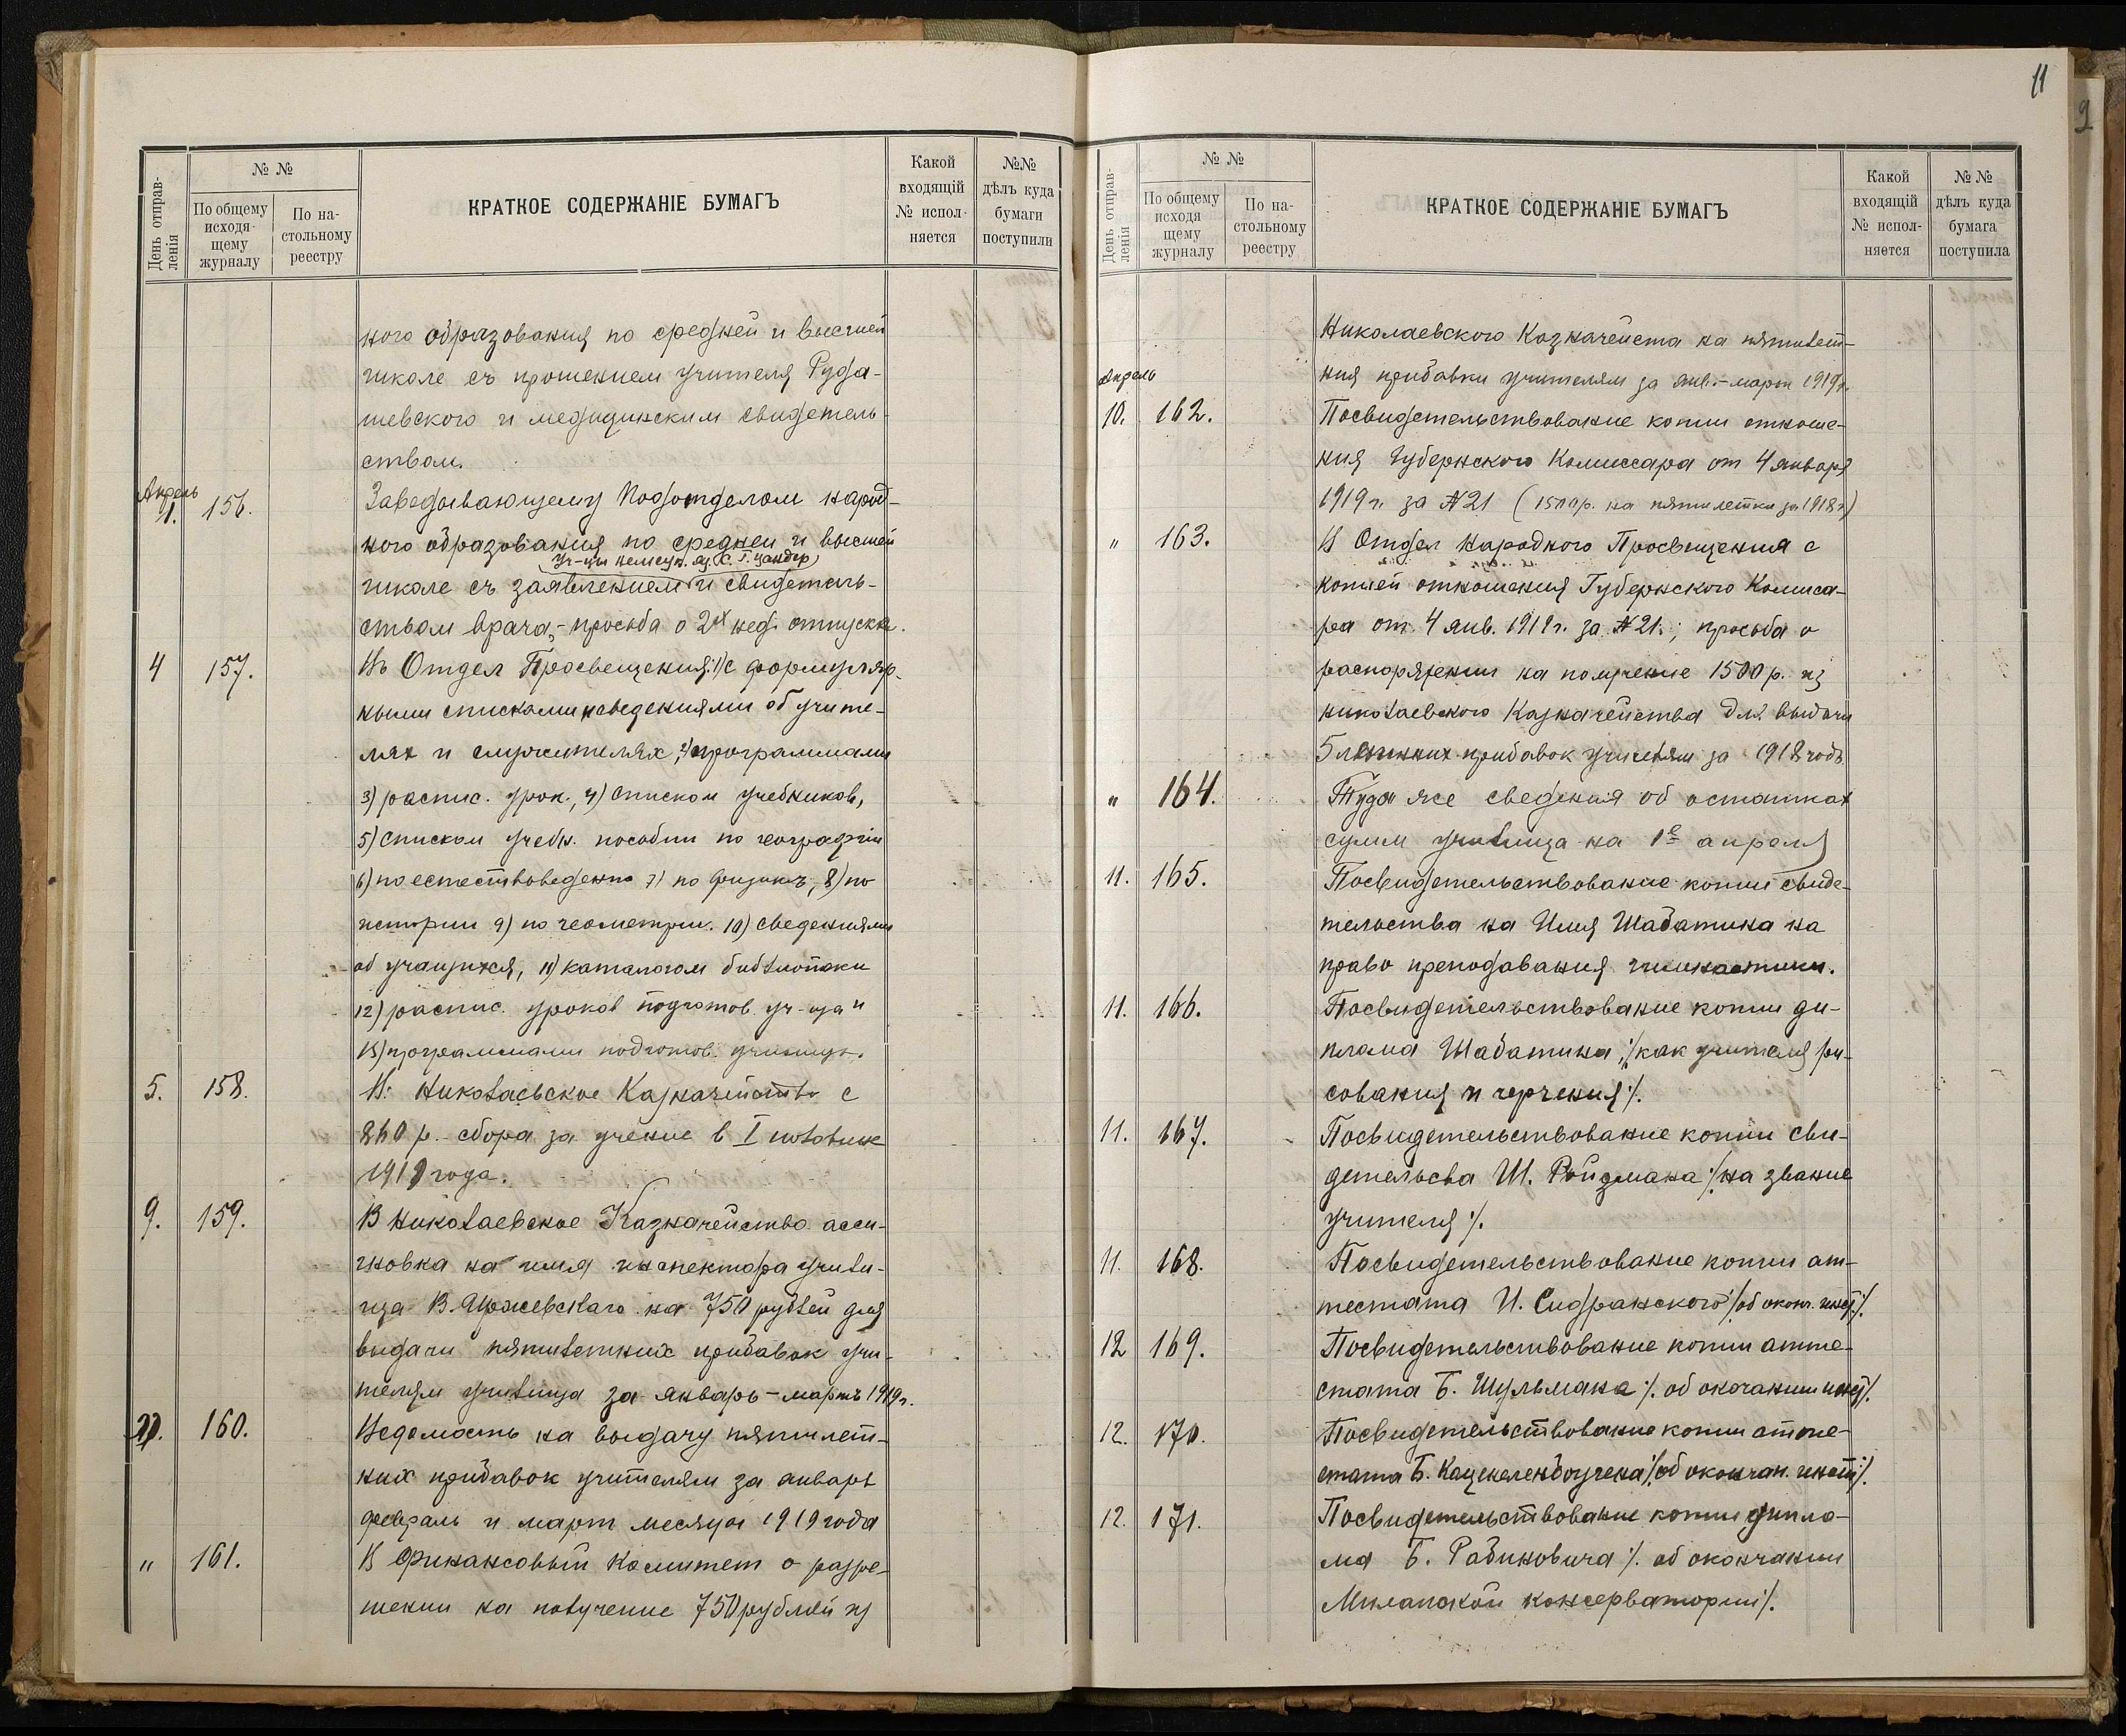 11
9
День отправ-
ленія
№ №
По общему
исходя-
щему
журналу
По на-
стольному
реестру
КРАТКОЕ СОДЕРЖАНІЕ БУМАГЪ
Какой
входящій
№ испол-
няется
№№
дѣлъ куда
бумаги
поступили
ного образования по средней и высшей
школе съ прошением учителя Руда-
шевского и медицинским свидетель-
ством.
Апрель
1. 156. Заведывающему Подотделом народ-
ного образования по средней и высшей
Уч-цы немецк. яз. С. Г. Цандер
школе съ заявлением и свидетель-
ством врача, - просьба о 2х нед. отпуска.
4 157. Въ Отдел Просвещения: 1) с формуляр-
ными списками и сведениями об учите-
лях и служителях, 2) программами
3) распис. урок., 4) списком учебников,
5) списком учебн. пособии по географіи
6) по естествоведению 7) по физикѣ, 8) по
истории 9) по геометрии. 10) сведениями
об учащихся, 11) каталогом библиотеки
12) распис. уроков подготов. уч-ща и
13) программами подготов. училищ.
5. 158. В Николаевское Казначейство с
260 р. сбора за учение в I половине
1919 года.
9. 159. В Николаевское Казначейство асси-
гновка на имя инспектора учили-
ща В. Яржевскаго на 750 рублей для
выдачи пятилетних прибавок учи-
телям училища за январь - мартъ 1919 г.
10. 160. Ведомость на выдачу пятилет-
них прибавок учителям за январь
февраль и март месяцы 1919 года
" 161. В Финансовый Комитет о разре-
шении на получение 750 рублей из
День отправ-
ленія
№ №
По общему
исходя
щему
журналу
По на-
стольному
реестру
КРАТКОЕ СОДЕРЖАНІЕ БУМАГЪ
Какой
входящій
№ испол-
няется
№ №
дѣлъ куда
бумага
поступила
Николаевского Казначейста на пятилет-
ния прибавки учителям за янв. - март 1919 г.
Апрель
10. 162. Посвидетельствование копии отноше-
ния Губернского Комиссара от 4 января
1919 г. за №21 (1500 р. на пятилетки за 1918 г.)
" 163. В Отдел Народного Просвещения с
копией отношения Губернского Комиса-
ра от 4 янв. 1919 г. за №21.; просьба о
распоряжении на получение 1500 р. из
Николаевского Казначейства для выдачи
5 летних прибавок учителям за 1918 годъ
" 164. Туда же сведения об остатках
сумм училища на 1е апреля
11. 165. Посвидетельствование копии свиде-
тельства на Имя Шабатина на
право преподавания гимнастики.
11. 166. Посвидетельствование копии ди-
плома Шабатина ./. как учителя ри-
сования и черчения ./.
11. 167. Посвидетельствование копии сви-
детельсва Ш. Ройзмана ./. на звание
учителя ./.
11. 168. Посвидетельствование копии ат-
тестата И. Сидранского ./. об оконч.
12 169. Посвидетельствование копии атте-
стата Б. Шульмана ./. об окочании
12. 170. Посвидетельствование копии атте-
стата Б. ./. об окончан.
12. 171. Посвидетельствование копии дипло-
ма Б. Рабиновича ./. об окончании
Миланской консерватории ./.